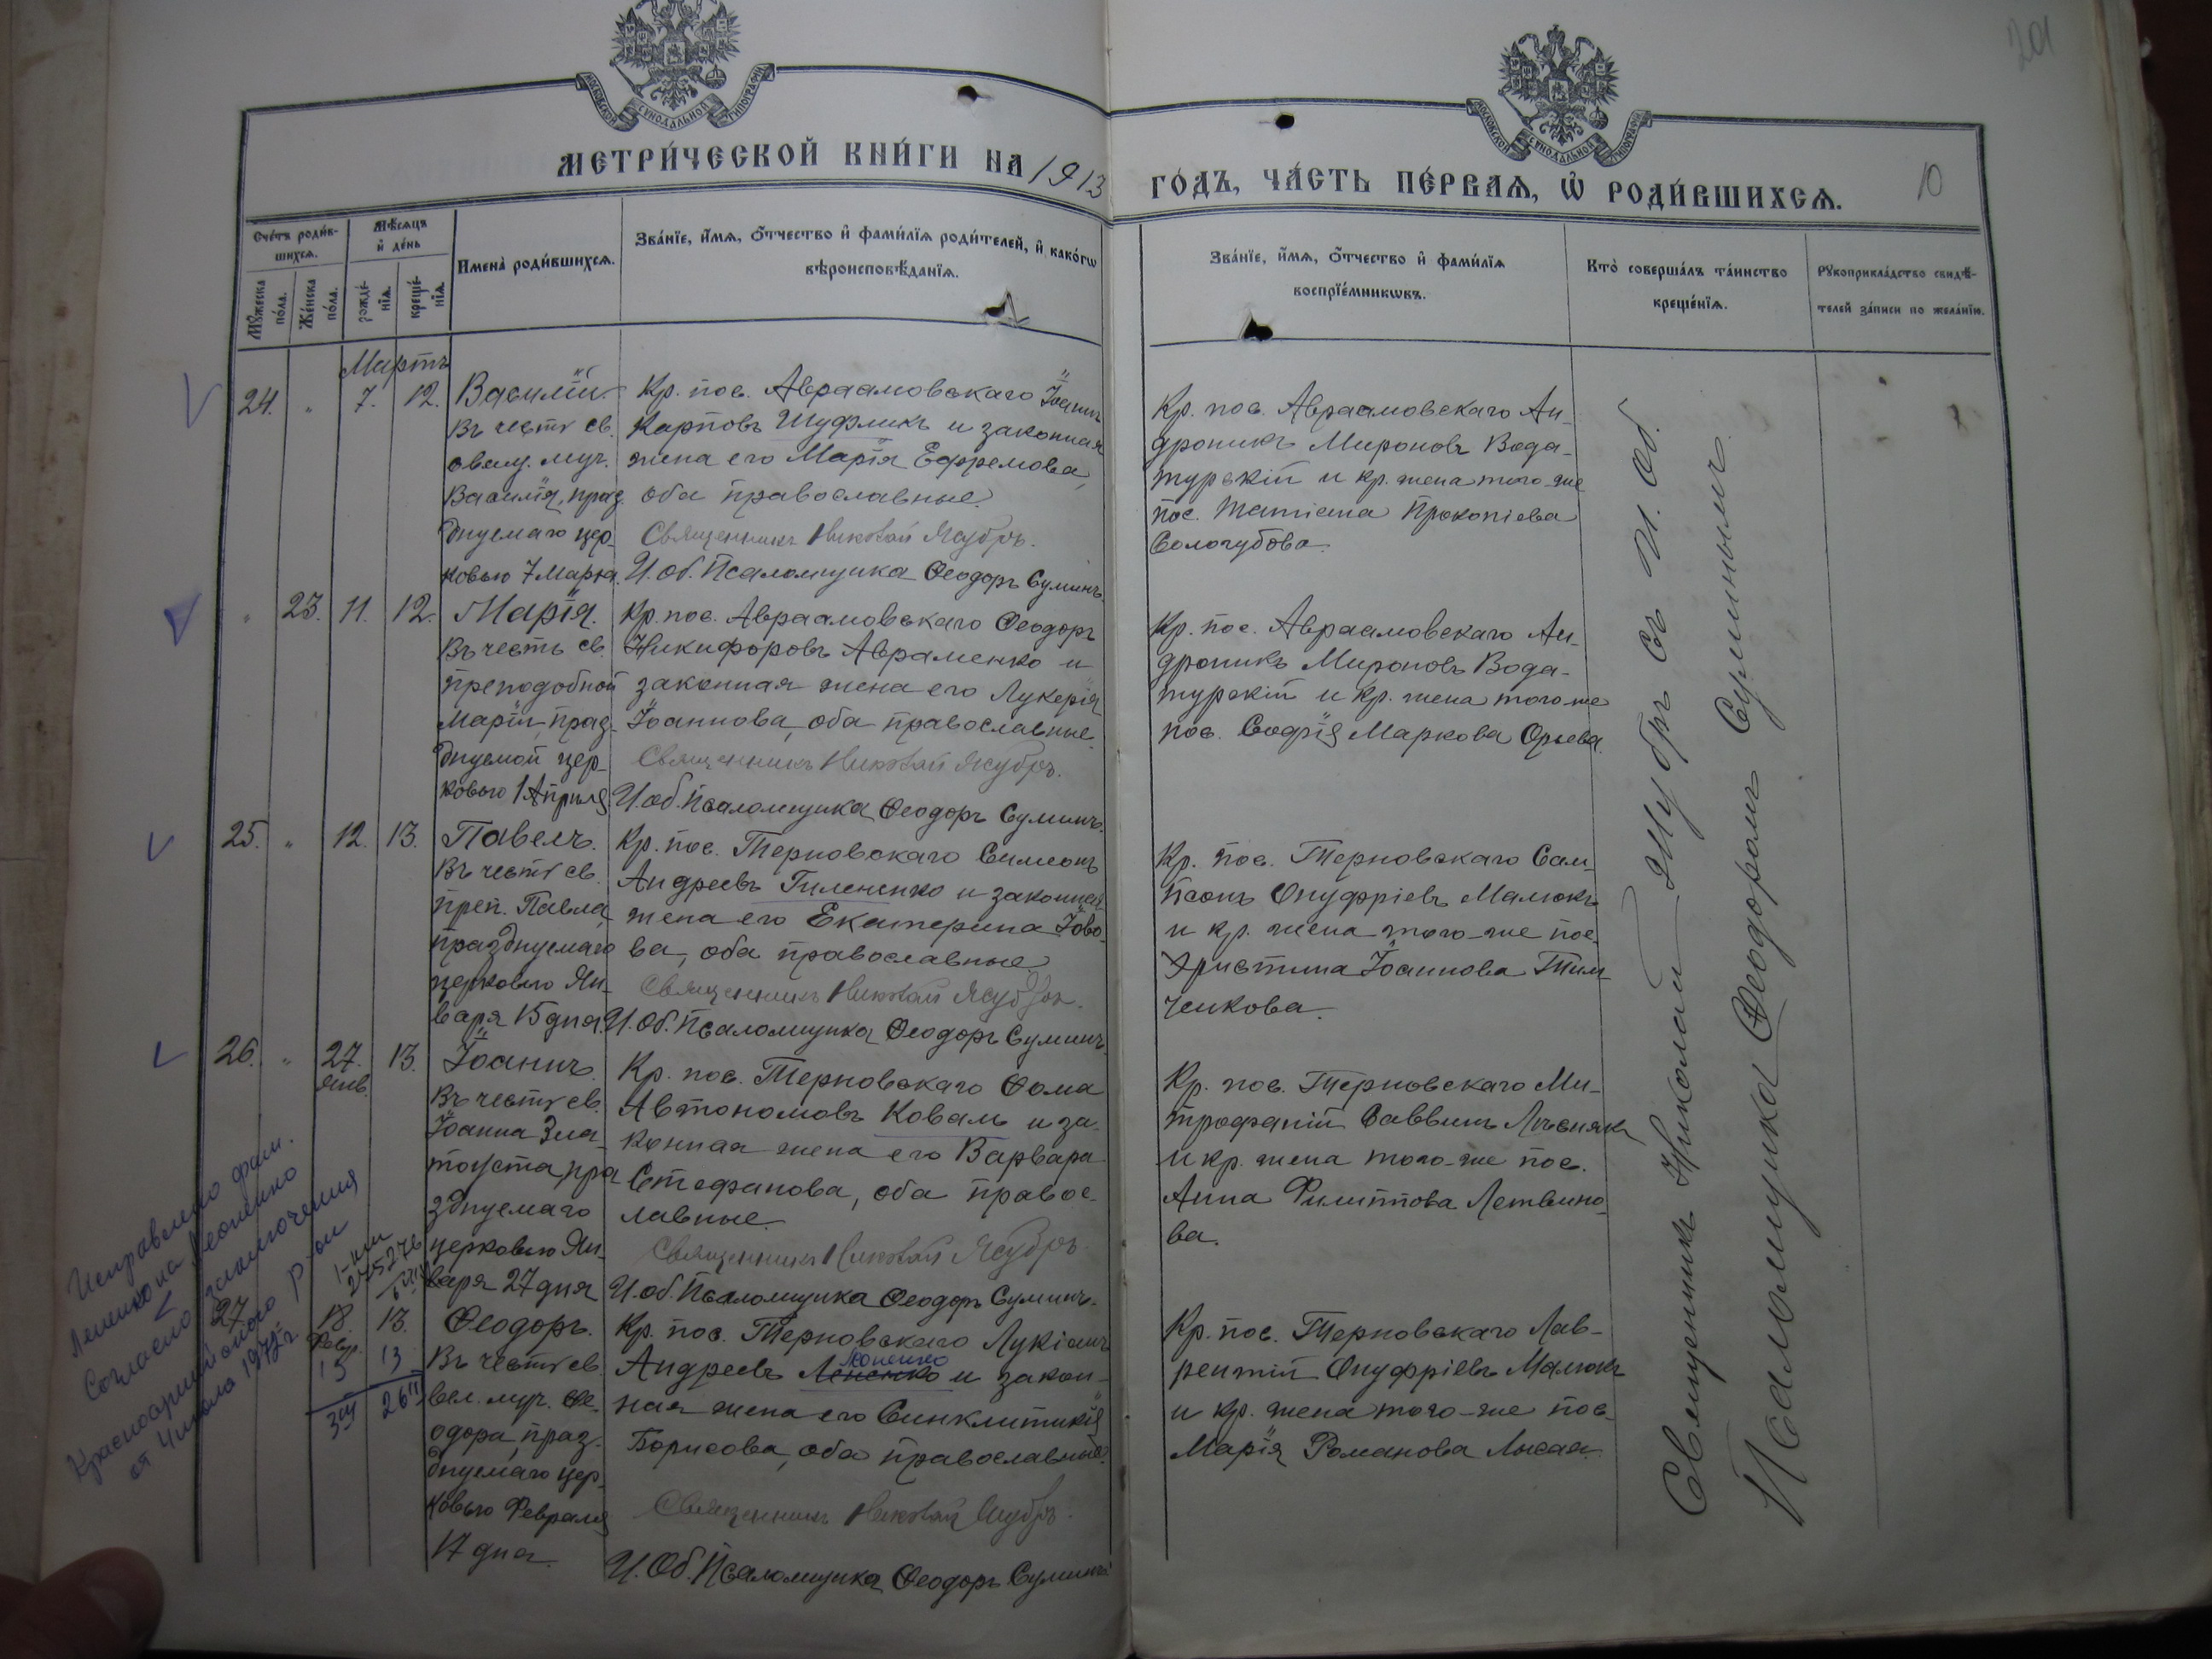 201
МОСКОВСКОЙ СѴНОДАЛЬНОЙ ТИПОГРАФІИ
МОСКОВСКОЙ СѴНОДАЛЬНОЙ ТИПОГРАФІИ
МЕТРИ́ЧЕСКОЙ КНИ́ГИ НА 1913
ГО́ДЪ, ЧА́СТЬ ПЕ́РВАѦ, Ѽ РОДИ́ВШИХСѦ.
10
Сче́тъ роди́в-
шихсѧ.
Мꙋ́жеска по́ла.
Же́нска по́ла.
Мѣ́сѧцъ
и҆ де́нь
рожде́-
нїѧ.
креще́-
нїѧ.
И҆мена̀ роди́вшихсѧ.
Зва́нїе, и҆́мѧ, ѻ҆́тчество и҆ фами́лїѧ роди́телей, и҆ како́гѡ
вѣроисповѣ́данїѧ.
Зва́нїе, и҆́мѧ, ѻ҆́тчество и҆ фами́лїѧ
воспрїе́мникѡвъ.
Кто̀ соверша́лъ та́инство
креще́нїѧ.
Рꙋкоприкла́дство свидѣ́-
телей за́писи по жела́нїю.
Мартъ
24. " 7. 12.
Василій.
Въ честь св.
свящ. муч.
Василія, праз
днуемаго цер-
ковью 7 Марта.
Кр. пос. Авраамовскаго Іоаннъ
Карповъ Шуфликъ и законная
жена его Марія Ефремова,
оба православные.
Священникъ Николай Якубръ.
И. об. Псаломщика Ѳеодоръ Суминъ.
Кр. пос. Авраамовскаго Ан-
дроникъ Мироновъ Вода-
турскій и кр. жена того-же
пос. Татіана Прокопіева
Сологубова.
" 23. 11. 12.
Марія.
Въ честь св.
преподобной
Маріи, праз-
днуемой цер-
ковью 1 Апрѣля
Кр. пос. Авраамовскаго Ѳеодоръ
Никифоровъ Авраменко и
законная жена его Лукерія
Іоаннова, оба православные.
Священникъ Николай Якубръ.
И. об. Псаломщика Ѳеодоръ Суминъ.
Кр. пос. Авраамовскаго Ан-
дроникъ Мироновъ Вода-
турскій и кр. жена того-же
пос. Софія Маркова Орлева
25. " 12. 13.
Павелъ.
Въ честь св.
преп. Павла,
празднуемаго
церковью Ян-
варя 15 дня.
Кр. пос. Терновскаго Симеонъ
Андреевъ Гилененко и законная
жена его Екатерина Іово-
ва, оба православные.
Священникъ Николай Якубръ.
И. Об. Псаломщика Ѳеодоръ Суминъ.
Кр. пос. Терновскаго Сам-
псонъ Онуфріевъ Малюкъ
и кр. жена того-же пос.
Христина Іоаннова Тим
ченкова.
26. " 27. 13.
Янв.
Іоаннъ.
Въ честь св.
Іоанна Зла-
тоуста, пра
зднуемаго
церковью Ян-
варя 27 дня
Кр. пос. Терновскаго Ѳома
Автономовъ Коваль и за-
конная жена его Варвара
Стефанова, оба правос-
лавные.
Священникъ Николай Якубръ
И. об. Псаломщика Ѳеодоръ Суминъ.
Кр. пос. Терновскаго Ми-
трофаній Саввинъ Лѣснякъ
и кр. жена того-же пос.
Анна Филиппова Летвино-
ва.
27 18 13.
Февр.
13 13
26
Ѳеодоръ.
Въ честь св.
вел. муч. Ѳе-
одора, праз-
днуемаго цер-
ковью Февраля
17 дня.
Кр. пос. Терновскаго Лукіанъ
Андреевъ Лененко Леоненко и закон-
ная жена его Синклитикія
Борисова, оба православные.
Священникъ Николай Якубръ.
И. Об. Псаломщика Ѳеодоръ Суминъ
Кр. пос. Терновскаго Лав-
рентій Онуфріевъ Малюкъ
и кр. жена того-же пос.
Марія Романова Лысая.
Исправлено фам.
на Леоненко
Согласно заключения
Красноармейского р-на
от 4 июля 1972 г
Священникъ Николай Якубръ съ И. Об.
Псаломщика Ѳеодоромъ Суминымъ